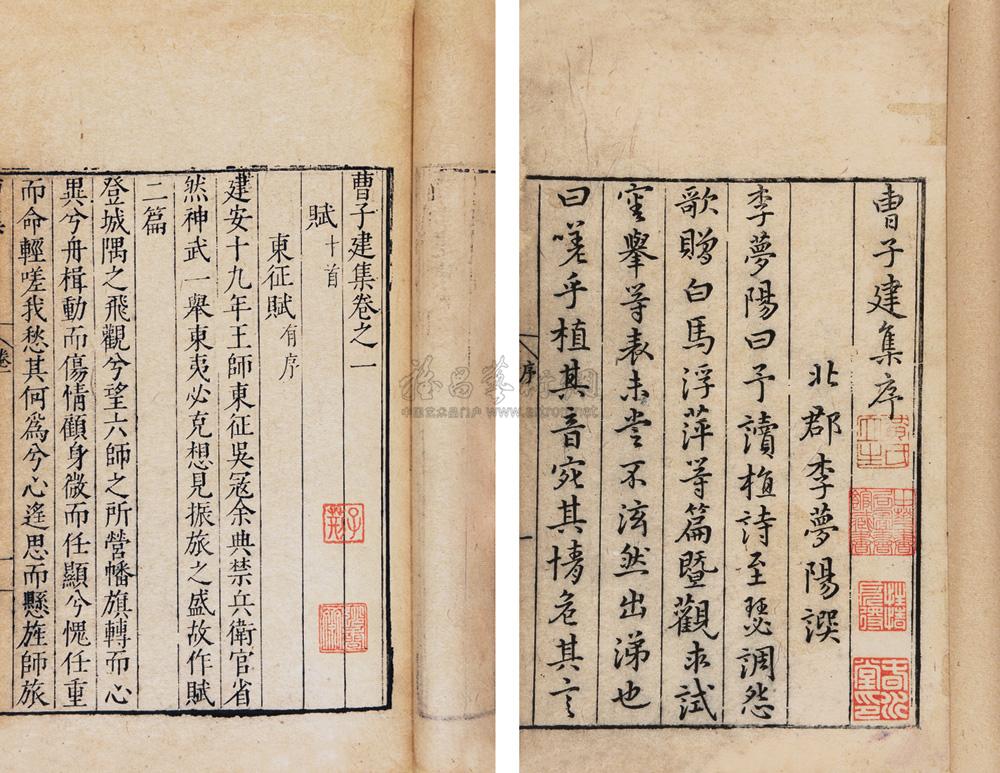 曹子建集序
北郡李夢陽譔
李夢陽曰予讀植詩至瑟調怨
歌贈白馬浮萍等篇暨觀求試
審舉等表未嘗不泫然出涕也
曰嗟乎植其音宛其情危其言
序
一
曹子建集卷之一
賦十首
東征賦有序
建安十九年王師東征吳寇余典禁兵衛官省
然神武一舉東夷必克想見振旅之盛故作賦
二篇
登城隅之飛觀兮望六師之所營幡旗轉而心
異兮舟楫動而傷情顧身微而任顯兮愧任重
而命輕嗟我愁其何為兮心遙思而懸旌師旅
卷
www.artron.net